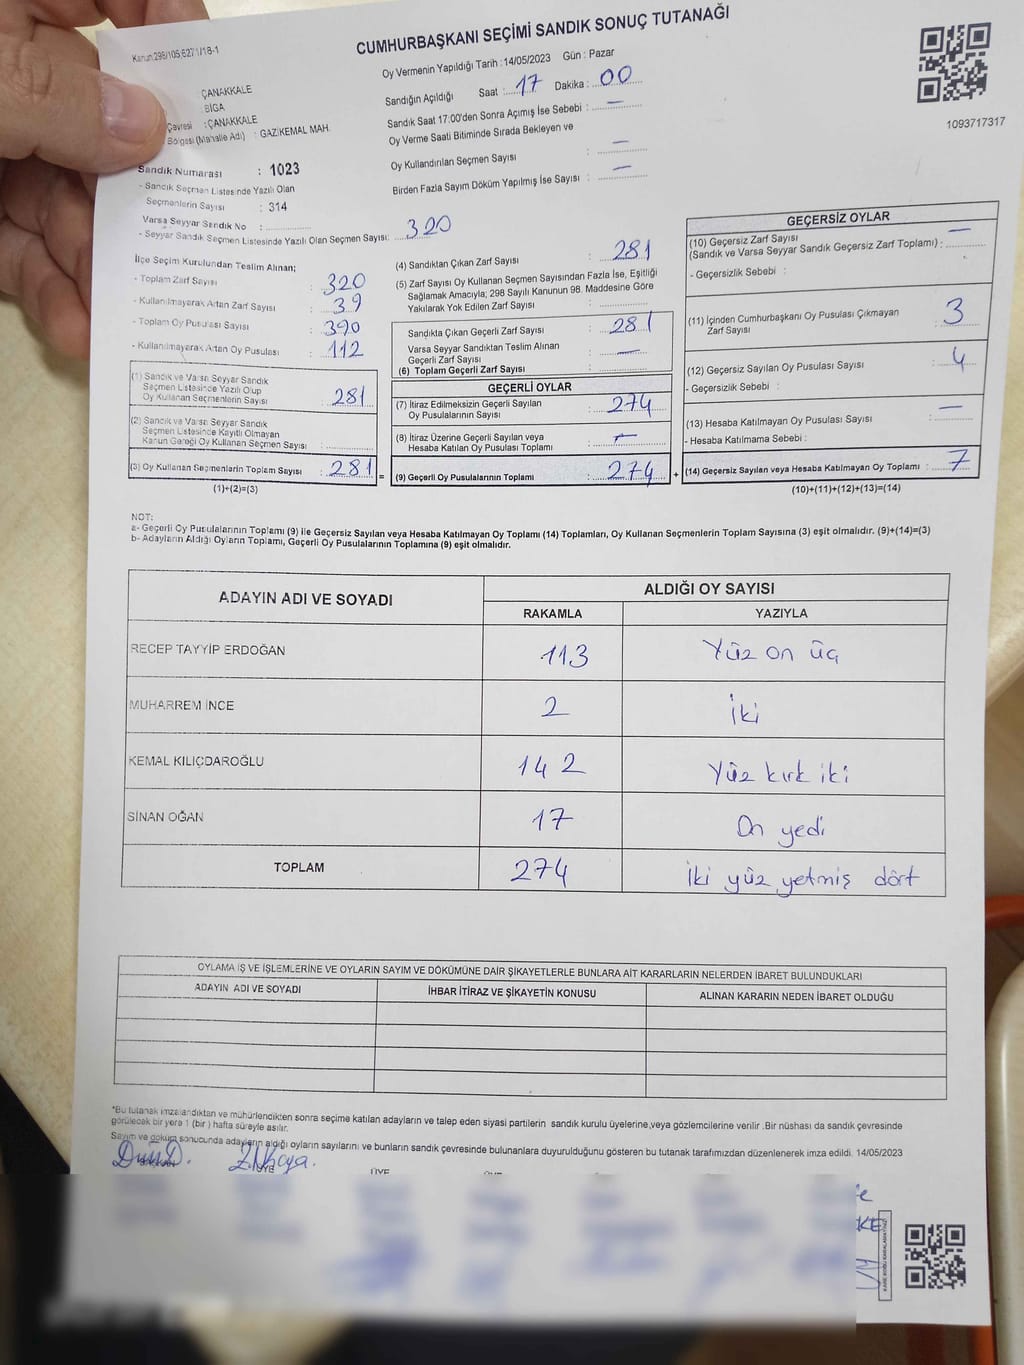 Kanun:298/105,627 1/18-1
CUMHURBAŞKANI SEÇİMİ SANDIK SONUÇ TUTANAĞI
ÇANAKKALE
BİGA
Çevresi : ÇANAKKALE
Bölgesi (Mahalle Adı) : GAZİKEMAL MAH.
Sandık Numarası : 1023
- Sandık Seçmen Listesinde Yazılı Olan
Seçmenlerin Sayısı : 314
Varsa Seyyar Sandık No :
- Seyyar Sandık Seçmen Listesinde Yazılı Olan Seçmen Sayısı: 320
Oy Vermenin Yapıldığı Tarih : 14/05/2023 Gün : Pazar
Sandığın Açıldığı Saat : 17 Dakika : 00
Sandık Saat 17:00'den Sonra Açılmış İse Sebebi : —
Oy Verme Saati Bitiminde Sırada Bekleyen ve
Oy Kullandırılan Seçmen Sayısı : —
Birden Fazla Sayım Döküm Yapılmış İse Sayısı : —
1093717317
İlçe Seçim Kurulundan Teslim Alınan;
- Toplam Zarf Sayısı : 320
- Kullanılmayarak Artan Zarf Sayısı : 39
- Toplam Oy Pusulası Sayısı : 390
- Kullanılmayarak Artan Oy Pusulası : 112
(1) Sandık ve Varsa Seyyar Sandık
Seçmen Listesinde Yazılı Olup
Oy Kullanan Seçmenlerin Sayısı : 281
(2) Sandık ve Varsa Seyyar Sandık
Seçmen Listesinde Kayıtlı Olmayan
Kanun Gereği Oy Kullanan Seçmen Sayısı :
(3) Oy Kullanan Seçmenlerin Toplam Sayısı : 281 =
(1)+(2)=(3)
(4) Sandıktan Çıkan Zarf Sayısı : 281
(5) Zarf Sayısı Oy Kullanan Seçmen Sayısından Fazla İse, Eşitliği
Sağlamak Amacıyla; 298 Sayılı Kanunun 98. Maddesine Göre
Yakılarak Yok Edilen Zarf Sayısı :
Sandıkta Çıkan Geçerli Zarf Sayısı : 281
Varsa Seyyar Sandıktan Teslim Alınan
Geçerli Zarf Sayısı : —
(6) Toplam Geçerli Zarf Sayısı :
GEÇERLİ OYLAR
(7) İtiraz Edilmeksizin Geçerli Sayılan
Oy Pusulalarının Sayısı : 274
(8) İtiraz Üzerine Geçerli Sayılan veya
Hesaba Katılan Oy Pusulası Toplamı : —
(9) Geçerli Oy Pusulalarının Toplamı : 274 +
GEÇERSİZ OYLAR
(10) Geçersiz Zarf Sayısı —
(Sandık ve Varsa Seyyar Sandık Geçersiz Zarf Toplamı) :
- Geçersizlik Sebebi :
(11) İçinden Cumhurbaşkanı Oy Pusulası Çıkmayan
Zarf Sayısı : 3
(12) Geçersiz Sayılan Oy Pusulası Sayısı : 4
- Geçersizlik Sebebi :
(13) Hesaba Katılmayan Oy Pusulası Sayısı : —
- Hesaba Katılmama Sebebi :
(14) Geçersiz Sayılan veya Hesaba Katılmayan Oy Toplamı : 7
(10)+(11)+(12)+(13)=(14)
NOT:
a- Geçerli Oy Pusulalarının Toplamı (9) ile Geçersiz Sayılan veya Hesaba Katılmayan Oy Toplamı (14) Toplamları, Oy Kullanan Seçmenlerin Toplam Sayısına (3) eşit olmalıdır. (9)+(14)=(3)
b- Adayların Aldığı Oyların Toplamı, Geçerli Oy Pusulalarının Toplamına (9) eşit olmalıdır.
ADAYIN ADI VE SOYADI ALDIĞI OY SAYISI
RAKAMLA YAZIYLA
RECEP TAYYİP ERDOĞAN 113 Yüz on üç
MUHARREM İNCE 2 İki
KEMAL KILIÇDAROĞLU 142 Yüz kırk iki
SİNAN OĞAN 17 On yedi
TOPLAM 274 İki yüz yetmiş dört
OYLAMA İŞ VE İŞLEMLERİNE VE OYLARIN SAYIM VE DÖKÜMÜNE DAİR ŞİKAYETLERLE BUNLARA AİT KARARLARIN NELERDEN İBARET BULUNDUKLARI
ADAYIN ADI VE SOYADI İHBAR İTİRAZ VE ŞİKAYETİN KONUSU ALINAN KARARIN NEDEN İBARET OLDUĞU
*Bu tutanak imzalandıktan ve mühürlendikten sonra seçime katılan adayların ve talep eden siyasi partilerin sandık kurulu üyelerine,veya gözlemcilerine verilir .Bir nüshası da sandık çevresinde
görülecek bir yere 1 (bir) hafta süreyle asılır.
Sayım ve döküm sonucunda adayların aldığı oyların sayılarını ve bunların sandık çevresinde bulunanlara duyurulduğunu gösteren bu tutanak tarafımızdan düzenlenerek imza edildi. 14/05/2023
ÜYE ÜYE